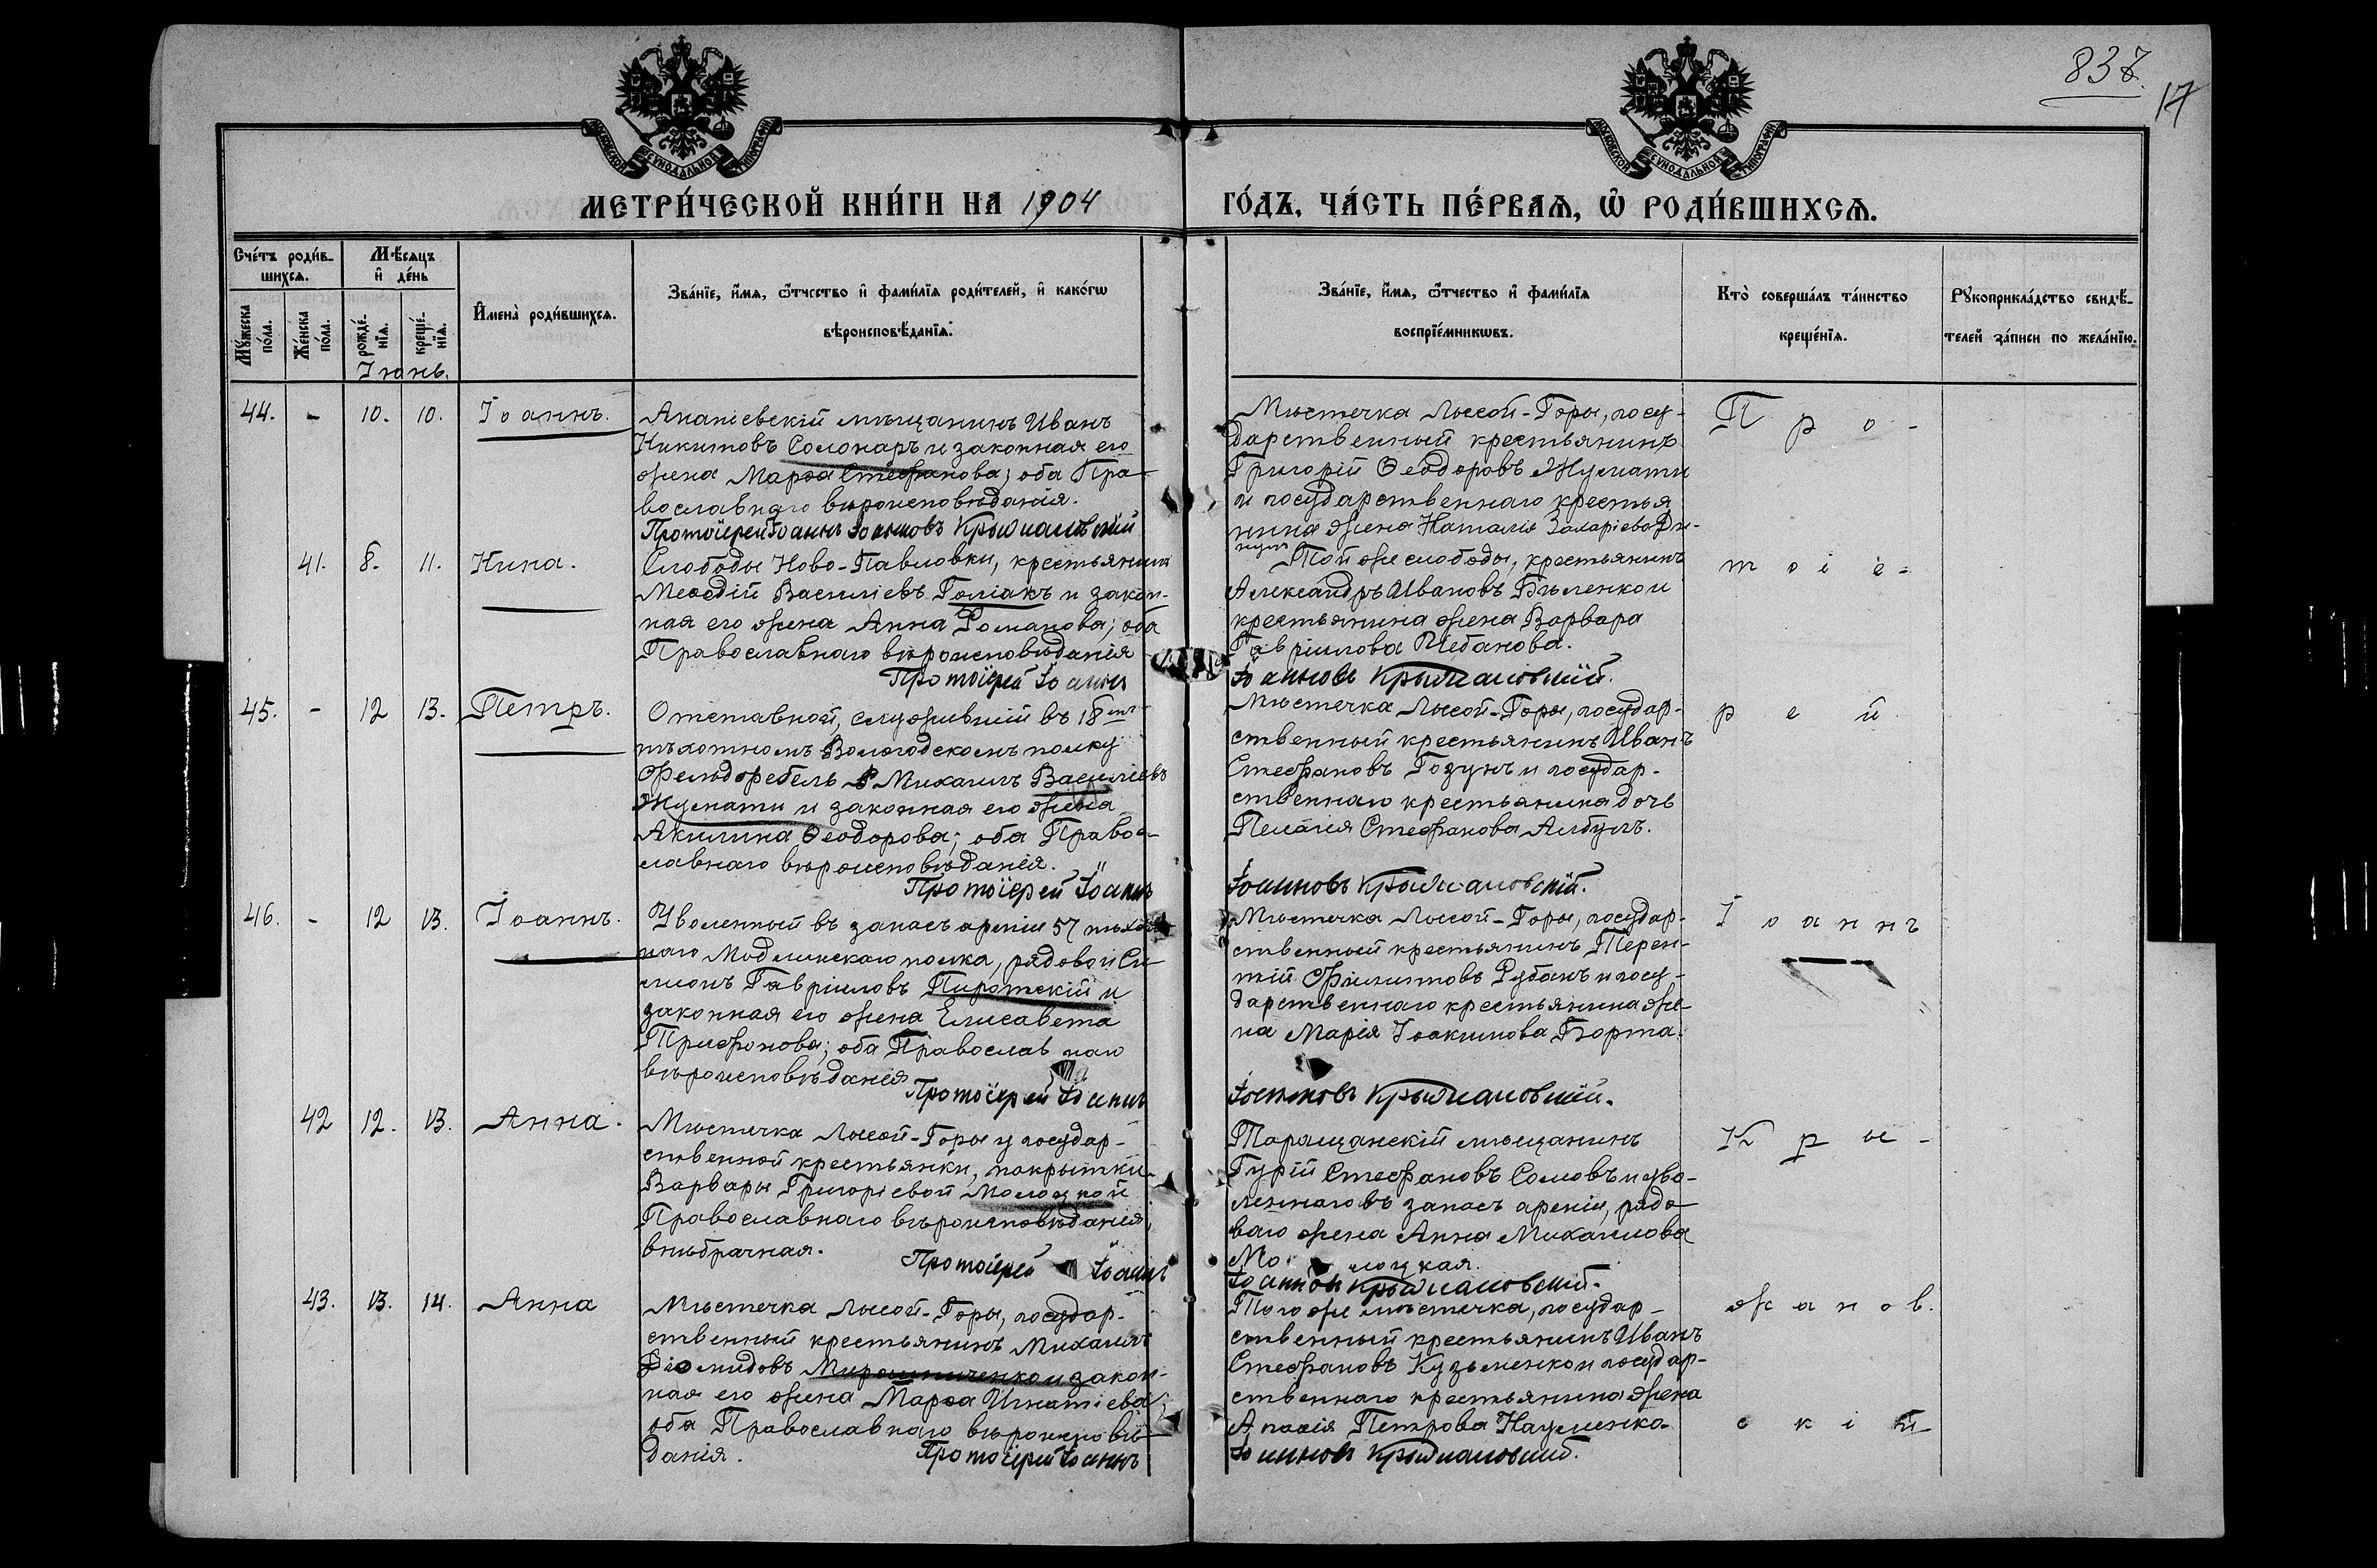 837.
17
МОСКОВСКОЙ СѴНОДАЛЬНОЙ ТИПОГРАФІИ
МОСКОВСКОЙ СѴНОДАЛЬНОЙ ТИПОГРАФІИ
МЕТРИ́ЧЕСКОЙ КНИ́ГИ НА 1904
ГО́ДЪ, ЧА́СТЬ ПЕ́РВАѦ, Ѡ҆ РОДИ́ВШИХСѦ.
Сче́тъ роди́в-
шихсѧ.
Мꙋ́жеска по́ла.
Же́нска по́ла.
Мѣ́сѧцъ
и҆ де́нь
рожде́-
нїѧ.
креще́-
нїѧ.
Іюнь.
И҆мена̀ роди́вшихсѧ.
Зва́нїе, и҆́мѧ, ѻ҆́тчество и҆ фами́лїѧ роди́телей, и҆ како́гѡ
вѣроисповѣ́данїѧ.
Зва́нїе, и҆́мѧ, ѻ҆́тчество и҆ фами́лїѧ
воспрїе́мникѡвъ.
Кто̀ соверша́лъ та́инство
креще́нїѧ.
Рꙋкоприкла́дство свидѣ́-
телей за́писи по жела́нїю.
44. - 10. 10. Іоаннъ.
Ананіевскій мѣщанинъ Иванъ
Никитовъ Солонаръ и законная его
жена Марѳа Стефанова; оба Пра-
вославнаго вѣроисповѣданія.
Протоіерей Іоаннъ Іоанновъ Крыжановскій
Мѣстечка Лысой-Горы, госу-
дарственный крестьянинъ
Григорій Ѳеодоровъ Жумати
и государственнаго крестья
нина жена Наталія Захаріева
П р о -
41. 8. 11. Нина.
Слободы Ново-Павловки, крестьянинъ
Меѳодій Василіевъ Голіакъ и закон-
ная его жена Анна Романова; оба
Православнаго вѣроисповѣданія
Протоіерей Іоаннъ
Той же слободы, крестьянинъ
Александръ Ивановъ Бѣленко и
крестьянина жена Варвара
Гавріилова Шебанова.
Іоанновъ Крыжановскій.
т о і е -
45. - 12 13. Петръ.
Отставной, служившій въ 18мъ
пѣхотномъ Вологодскомъ полку
Фельдфебель Михаилъ Василіевъ
Жумати и законная его жена
Акилина Ѳеодорова; оба Право-
славнаго вѣроисповѣданія.
Протоіерей Іоаннъ
Мѣстечка Лысой-Горы, государ-
ственный крестьянинъ Иванъ
Стефановъ Гозунъ и государ-
ственнаго крестьянина дочь
Пелагія Стефанова Албулъ.
Іоанновъ Крыжановскій.
р е й
46. - 12 13. Іоаннъ.
Уволенный въ запасъ арміи 57 пѣхот
наго Модлинскаго полка, рядовой Си-
меонъ Гавріиловъ Пиротскій и
законная его жена Елисавета
Трифонова; оба Православнаго
вѣроисповѣданія
Протоіерей Іоаннъ
Мѣстечка Лысой-Горы, государ-
ственный крестьянинъ Терен-
тій Филиповъ Рубанъ и госу-
дарственнаго крестьянина же-
на Марія Іоакимова Борта.
Іоанновъ Крыжановскій.
І о а н н ъ
42 12. 13. Анна.
Мѣстечка Лысой-Горы у государ-
ственной крестьянки, покрытки
Варвары Григоріевой Молоцкой
Православнаго вѣроисповѣданія,
внѣбрачная.
Протоіерей Іоаннъ
Таращанскій мѣщанинъ
Гурій Стефановъ Соловъ и уво-
леннаго въ запасъ арміи, рядо-
ваго жена Анна Михаилова
Молоцкая.
Іоанновъ Крыжановскій.
К р ы -
43. 13. 14. Анна
Мѣстечка Лысой-Горы, государ-
ственный крестьянинъ Михаилъ
Діомидовъ Мирошниченко и закон-
ная его жена Марѳа Игнатіева;
оба Православнаго вѣроисповѣ-
данія.
Протоіерей Іоаннъ
Того же мѣстечка, государ-
ственный крестьянинъ Иванъ
Стефановъ Кузьменко и государ-
ственнаго крестьянина жена
Агаѳія Петрова Науменко.
Іоанновъ Крыжановскій.
ж а н о в.
с к і й